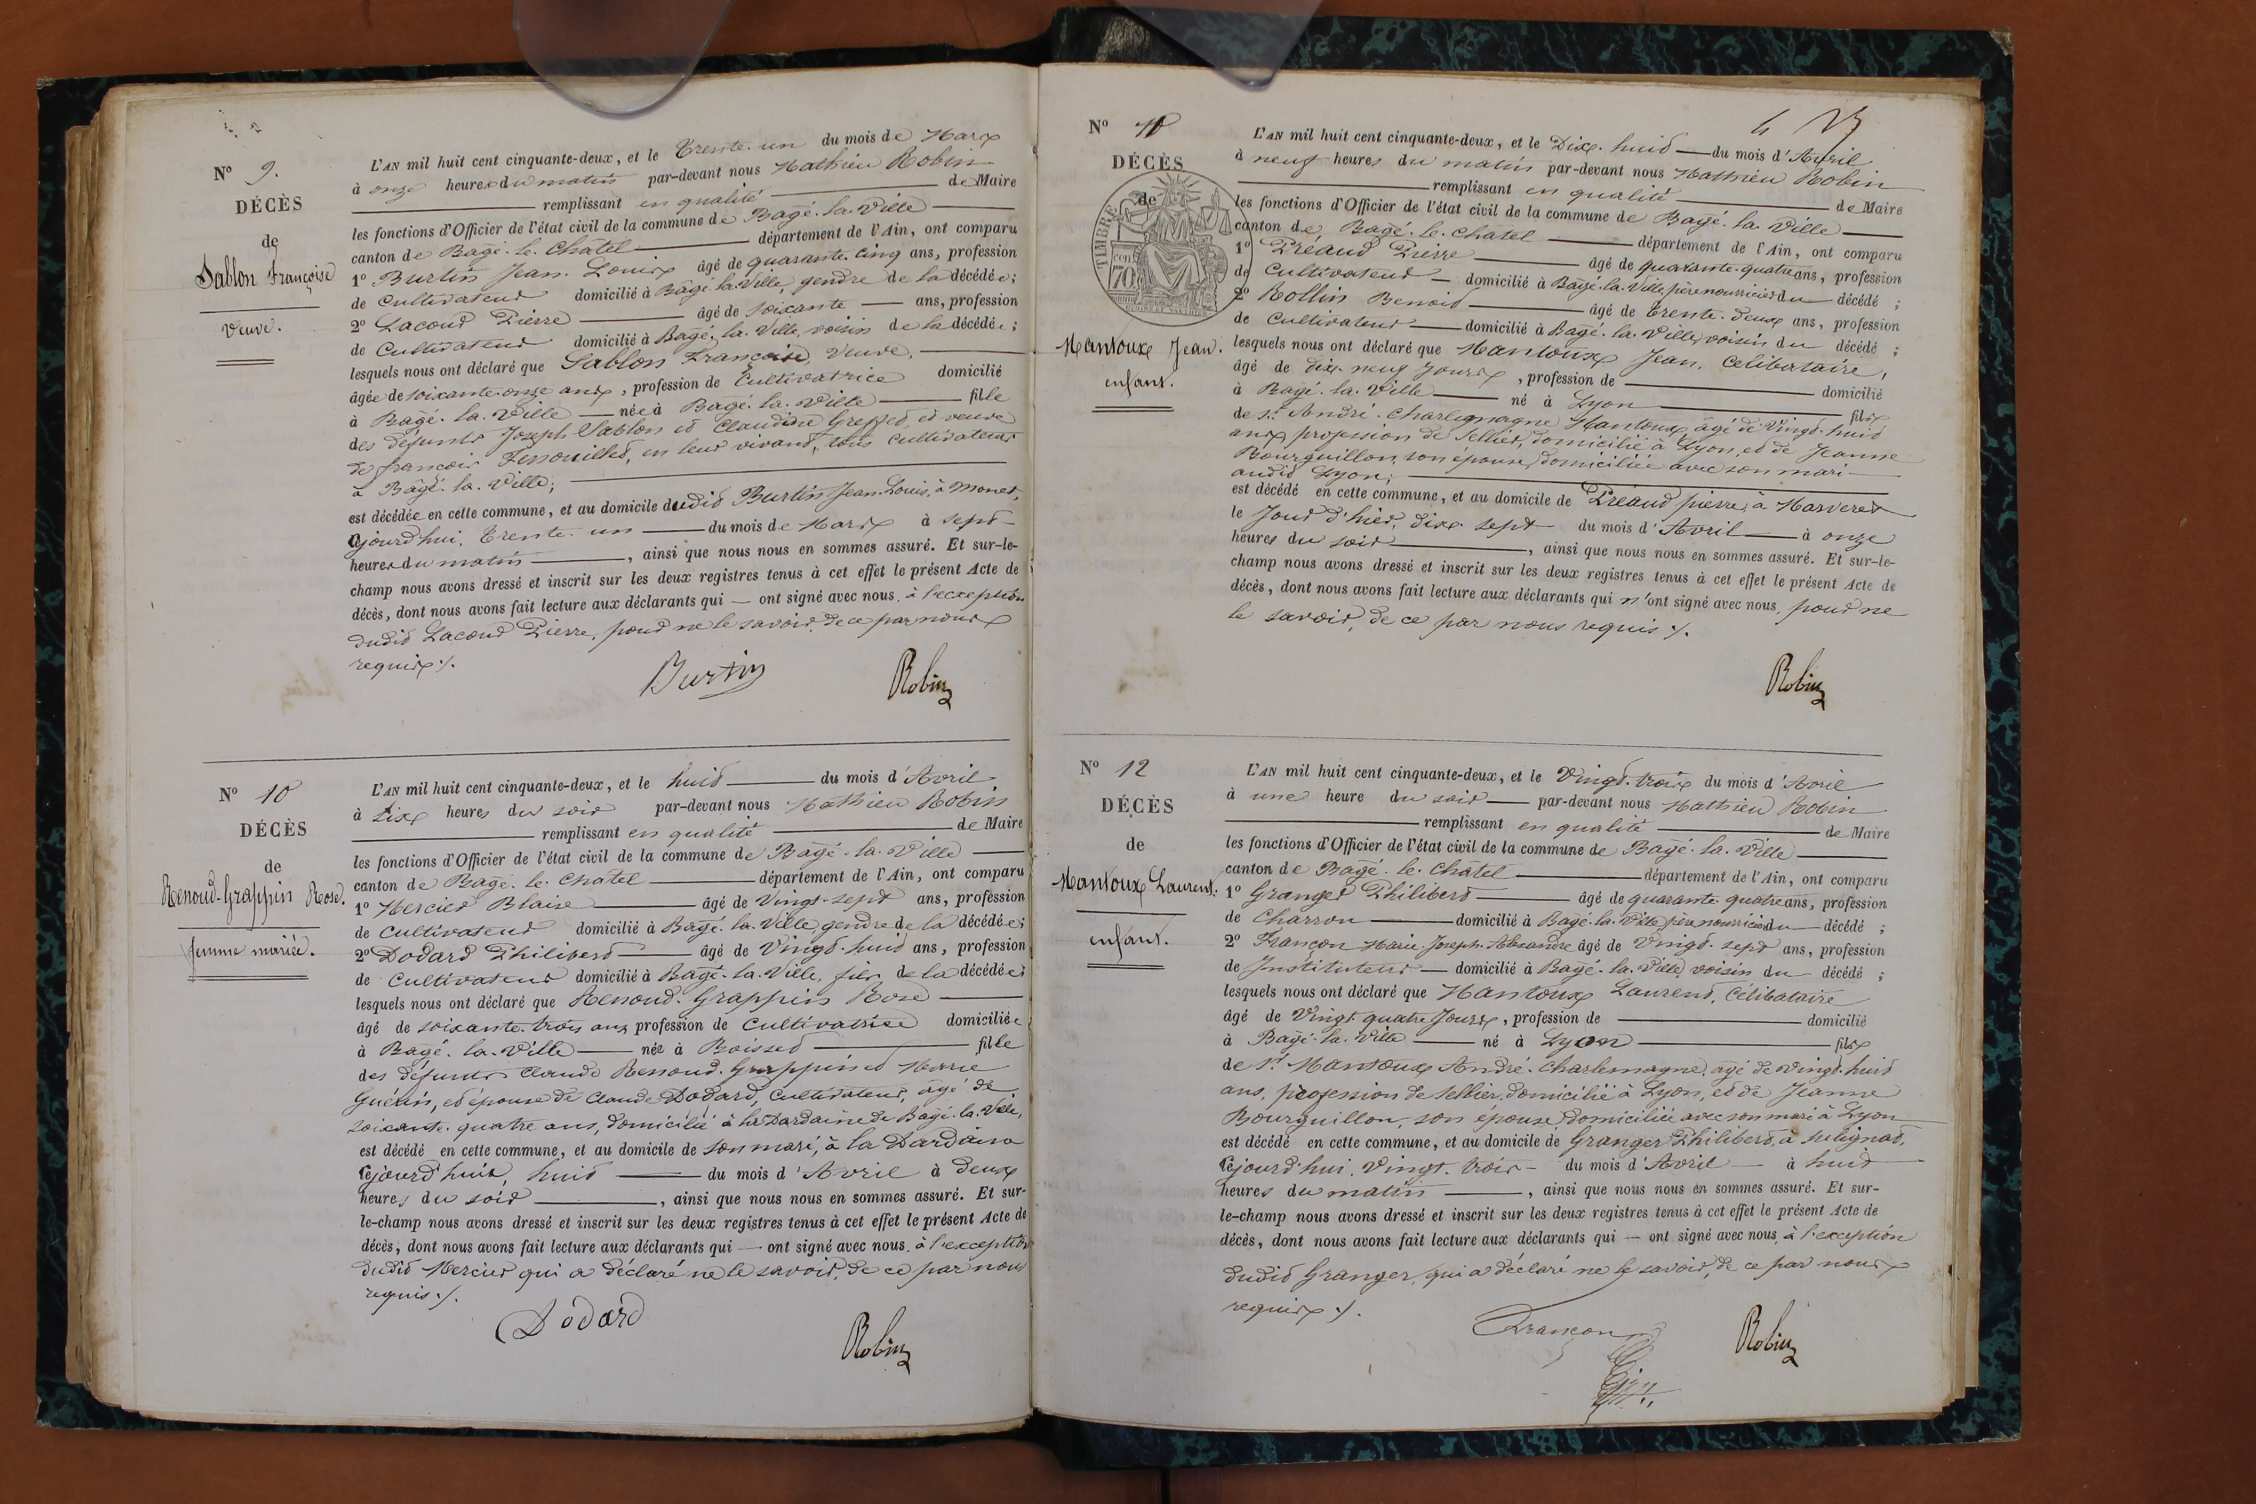 N.º 9.
DÉCÈS
de
Sablon Françoise
veuve.
L'AN mil huit cent cinquante-deux, et le Trente-un du mois de Mars
à onze heures du matin par-devant nous Mathieu Robin
remplissant en qualité de Maire
les fonctions d'Officier de l'état civil de la commune de Bagé-la-Ville
canton de Bagé-le-Châtel département de l'Ain, ont comparu
1º Burtin Jean-Louis âgé de quarante-cinq ans, profession
de Cultivateur domicilié à Bâgé-la-Ville, gendre de la décédée;
2º Lacour Pierre âgé de soixante ans, profession
de Cultivateur domicilié à Bagé-la-Ville, voisin de la décédée;
lesquels nous ont déclaré que Sablon Françoise, veuve,
âgée de soixante-onze ans, profession de Cultivatrice domicilié
à Bagé-la-Ville née à Bagé-la-Ville fille
des défunts Joseph Sablon et Claudine Greffet, et veuve
de françois Fenouillet, en leur vivant, tous cultivateurs
à Bâgé-la-Ville;
est décédée en cette commune, et au domicile dudit Burtin Jean-Louis, à Monet,
cejourd'hui, Trente-un du mois de Mars à sept
heures du matin, ainsi que nous nous en sommes assuré. Et sur-le-
champ nous avons dressé et inscrit sur les deux registres tenus à cet effet le présent Acte de
décès, dont nous avons fait lecture aux déclarants qui — ont signé avec nous, à l'exception
dudit Lacour Pierre, pour ne le savoir, de ce par nous
requis ./.
Burtin
Robin
N.º 10
DÉCÈS
de
Renoud-Grappin Rose.
femme mariée.
L'AN mil huit cent cinquante-deux, et le huit du mois d'Avril
à Six heures du soir par-devant nous Mathieu Robin
remplissant en qualité de Maire
les fonctions d'Officier de l'état civil de la commune de Bâgé-la-Ville
canton de Bagé-le-Châtel département de l'Ain, ont comparu
1º Mercier Blaise âgé de Vingt-sept ans, profession
de Cultivateur domicilié à Bagé-la-Ville gendre de la décédée;
2º Dodard Philibert âgé de Vingt-huit ans, profession
de Cultivateur domicilié à Bagé-la-Ville, fils de la décédée;
lesquels nous ont déclaré que Renoud-Grappin Rose
âgé de soixante-trois ans profession de Cultivatrice domiciliée
à Bagé-la-Ville née à Boisset fille
des défunts Claude Renoud-Grappin et Marie
Guérin, et épouse de Claude Dodard, Cultivateur, âgé de
soixante-quatre ans, domicilié à la Dardaine de Bagé-la-Ville,
est décédé en cette commune, et au domicile de son mari, à la Dardaine
cejourd'hui, huit du mois d'Avril à deux
heures du soir, ainsi que nous nous en sommes assuré. Et sur-
le-champ nous avons dressé et inscrit sur les deux registres tenus à cet effet le présent Acte de
décès, dont nous avons fait lecture aux déclarants qui — ont signé avec nous, à l'exception
dudit Mercier qui a déclaré ne le savoir, de ce par nous
requis ./.
Dodard
Robin
4
N.º 11
DÉCÈS
de
TIMBRE
70
Mantoux Jean.
enfant.
L'AN mil huit cent cinquante-deux, et le Dix-huit du mois d'Avril
à neuf heures du matin par-devant nous Mathieu Robin
remplissant en qualité de Maire
les fonctions d'Officier de l'état civil de la commune de Bagé-la-Ville
canton de Bagé-le-Châtel département de l'Ain, ont comparu
1º Préaud Pierre âgé de quarante-quatre ans, profession
de Cultivateur domicilié à Bâgé-la-Ville père nourricier du décédé;
2º Rollin Benoit âgé de Trente-deux ans, profession
de Cultivateur domicilié à Bagé-la-Ville, voisin du décédé;
lesquels nous ont déclaré que Mantoux Jean, Célibataire,
âgé de dix-neuf Jours, profession de domicilié
à Bagé-la-Ville né à Lyon fils
de Sr. André-Charlemagne Mantoux âgé de Vingt-huit
ans profession de Sellier, domicilié à Lyon, et de Jeanne
Bourguillon, son épouse, domiciliée avec son mari
audit Lyon;
est décédé en cette commune, et au domicile de Préaud pierre, à Marveret
le Jour d'hier, dix-sept du mois d'Avril à onze
heures du soir, ainsi que nous nous en sommes assuré. Et sur-le-
champ nous avons dressé et inscrit sur les deux registres tenus à cet effet le présent Acte de
décès, dont nous avons fait lecture aux déclarants qui n'ont signé avec nous, pour ne
le savoir, de ce par nous requis ./.
Robin
N.º 12
DÉCÈS
de
Mantoux Laurent.
enfant.
L'AN mil huit cent cinquante-deux, et le Vingt-trois du mois d'Avril
à une heure du soir par-devant nous Mathieu Robin
remplissant en qualité de Maire
les fonctions d'Officier de l'état civil de la commune de Bagé-la-Ville
canton de Bagé-le-Châtel département de l'Ain, ont comparu
1º Granger Philibert âgé de quarante-quatre ans, profession
de Charron domicilié à Bagé-la-Ville père nourricier du décédé;
2º Françon Marie-Joseph-Alexandre âgé de Vingt-sept ans, profession
de Instituteur domicilié à Bagé-la-Ville, voisin du décédé;
lesquels nous ont déclaré que Mantoux Laurent, Célibataire
âgé de Vingt-quatre Jours, profession de domicilié
à Bagé-la-Ville né à Lyon fils
de Sr. Mantoux André-Charlemagne, âgé de vingt-huit
ans, profession de Sellier, domicilié à Lyon, et de Jeanne
Bourguillon, son épouse, domiciliée avec son mari à Lyon
est décédé en cette commune, et au domicile de Granger Philibert, à Sulignat,
cejourd'hui, Vingt-trois du mois d'Avril à huit
heures du matin, ainsi que nous nous en sommes assuré. Et sur-
le-champ nous avons dressé et inscrit sur les deux registres tenus à cet effet le présent Acte de
décès, dont nous avons fait lecture aux déclarants qui — ont signé avec nous, à l'exception
dudit Granger, qui a déclaré ne le savoir, de ce par nous
requis ./.
Françon
Robin